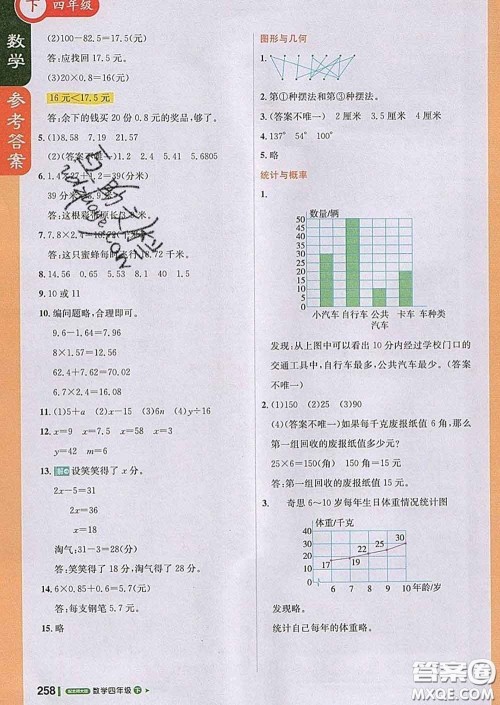 下 四年级
数学
参考答案
(2)100－82.5＝17.5(元)
答:应找回 17.5 元。
(3)20×0.8＝16(元)
16 元＜17.5 元
答:余下的钱买 20 份 0.8 元的奖品,够了。
5. (1)8.58 7.19 21.57
(2)(答案不唯一)1.2 2.4 5.41 5.6805
答:这只蜜蜂每时飞行 18.72 千米。
8. 14.56 0.65 5.53 1.21 40
9. 10 或 11
10. 编问题略,合理即可。
9.6－1.64＝7.96
8×1.57＝12.56
62.4＋7.6＝70
57.6＋0.4＝58
3.6×0.8＝2.88
7.6×0.4＝3.04
3.6＋20.4＝24
7.6＋0.45＝8.05
11. (1)5＋a (2)5b (3)6n (4)y÷16
12. x＝9 x＝7.5 x＝58 x＝3
y＝42 m＝8
13. 设笑笑得了 x 分。
2x－5＝31
2x＝36
x＝18
淘气:31－3＝28(分)
答:笑笑得了 18 分,淘气得了 28 分。
14. 6×0.85＋0.6＝5.7(元)
答:每支钢笔 5.7 元。
15. 略
258 数学四年级 下
图形与几何
1.
2. 第①种摆法和第③种摆法。
3. (答案不唯一) 2 厘米 3.5 厘米 4 厘米
4. 137° 54° 100°
5. 略
统计与概率
1.
数量/辆
50
45
40
35
30
25
20
15
10
5
0
小汽车 自行车 公共汽车 卡车 车种类
发现:从上图中可以看出 10 分内经过学校门口的
交通工具中,自行车最多,公共汽车最少。(答案
不唯一)
2. (1)150 (2)25 (3)90
(4)(答案不唯一)如果每千克废报纸值 6 角,那么
第一组回收的废报纸值多少元?
25×6＝150(角) 150 角＝15 元
答:第一组回收的废报纸值 15 元。
3. 奇思 6～10 岁每年生日体重情况统计图
体重/千克
40
30
20
10
0
17 19 23 25 30
6 7 8 9 10 年龄/岁
发现略。
统计自己的体重情况略。
答案圈
MXQE.COM